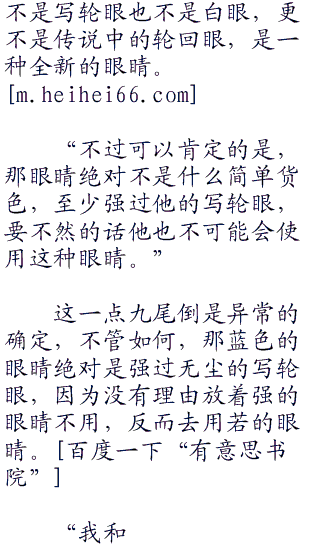 不是写轮眼也不是白眼，更
不是传说中的轮回眼，是一
种全新的眼睛。
[m.heihei66.com]
“不过可以肯定的是，
那眼睛绝对不是什么简单货
色，至少强过他的写轮眼，
要不然的话他也不可能会使
用这种眼睛。”
这一点九尾倒是异常的
确定，不管如何，那蓝色的
眼睛绝对是强过无尘的写轮
眼，因为没有理由放着强的
眼睛不用，反而去用若的眼
睛。[百度一下“有意思书
院”]
“我和